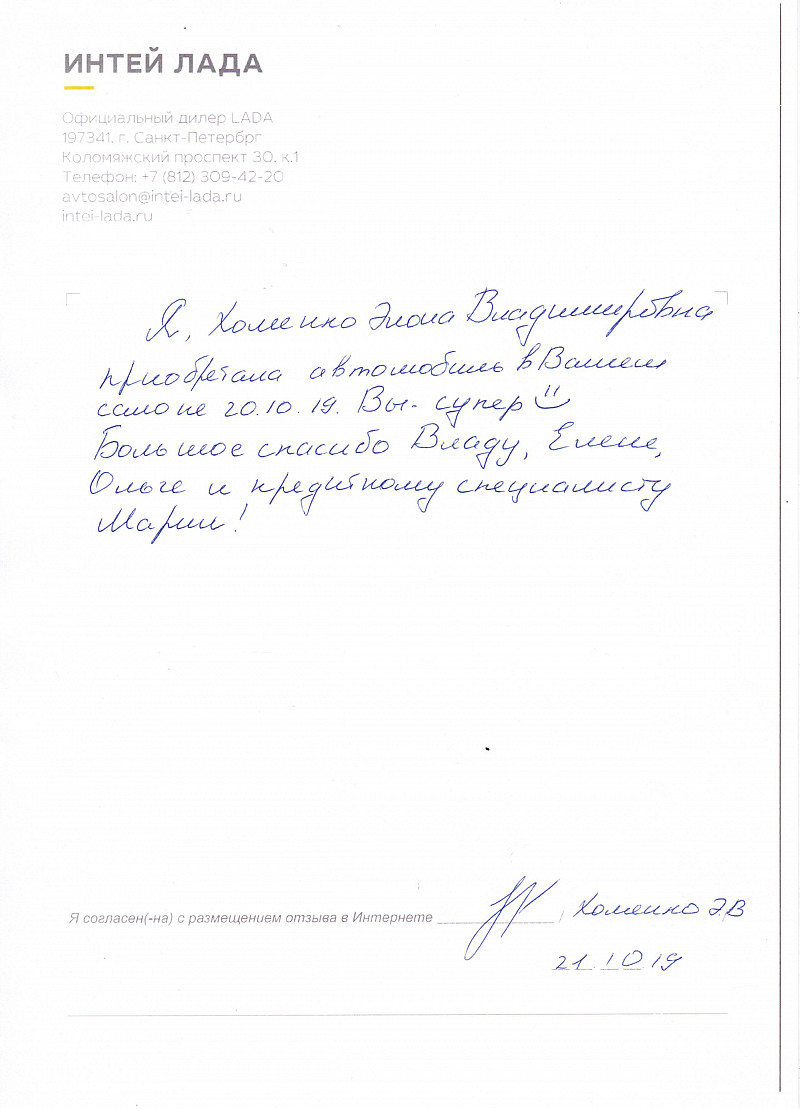 ИНТЕЙ ЛАДА
Официальный дилер LADA
197341, г. Санкт-Петербрг
Коломяжский проспект 30, к.1
Телефон: +7 (812) 309-42-20
avtosalon@intei-lada.ru
intei-lada.ru
Я, Хоменко Элона Владимировна
приобретала автомобиль в Вашем
салоне 20.10.19. Вы - супер
Большое спасибо Владу, Елене,
Ольге и кредитному специалисту
Марии!
Я согласен(-на) с размещением отзыва в Интернете / Хоменко Э.В
21.10.19